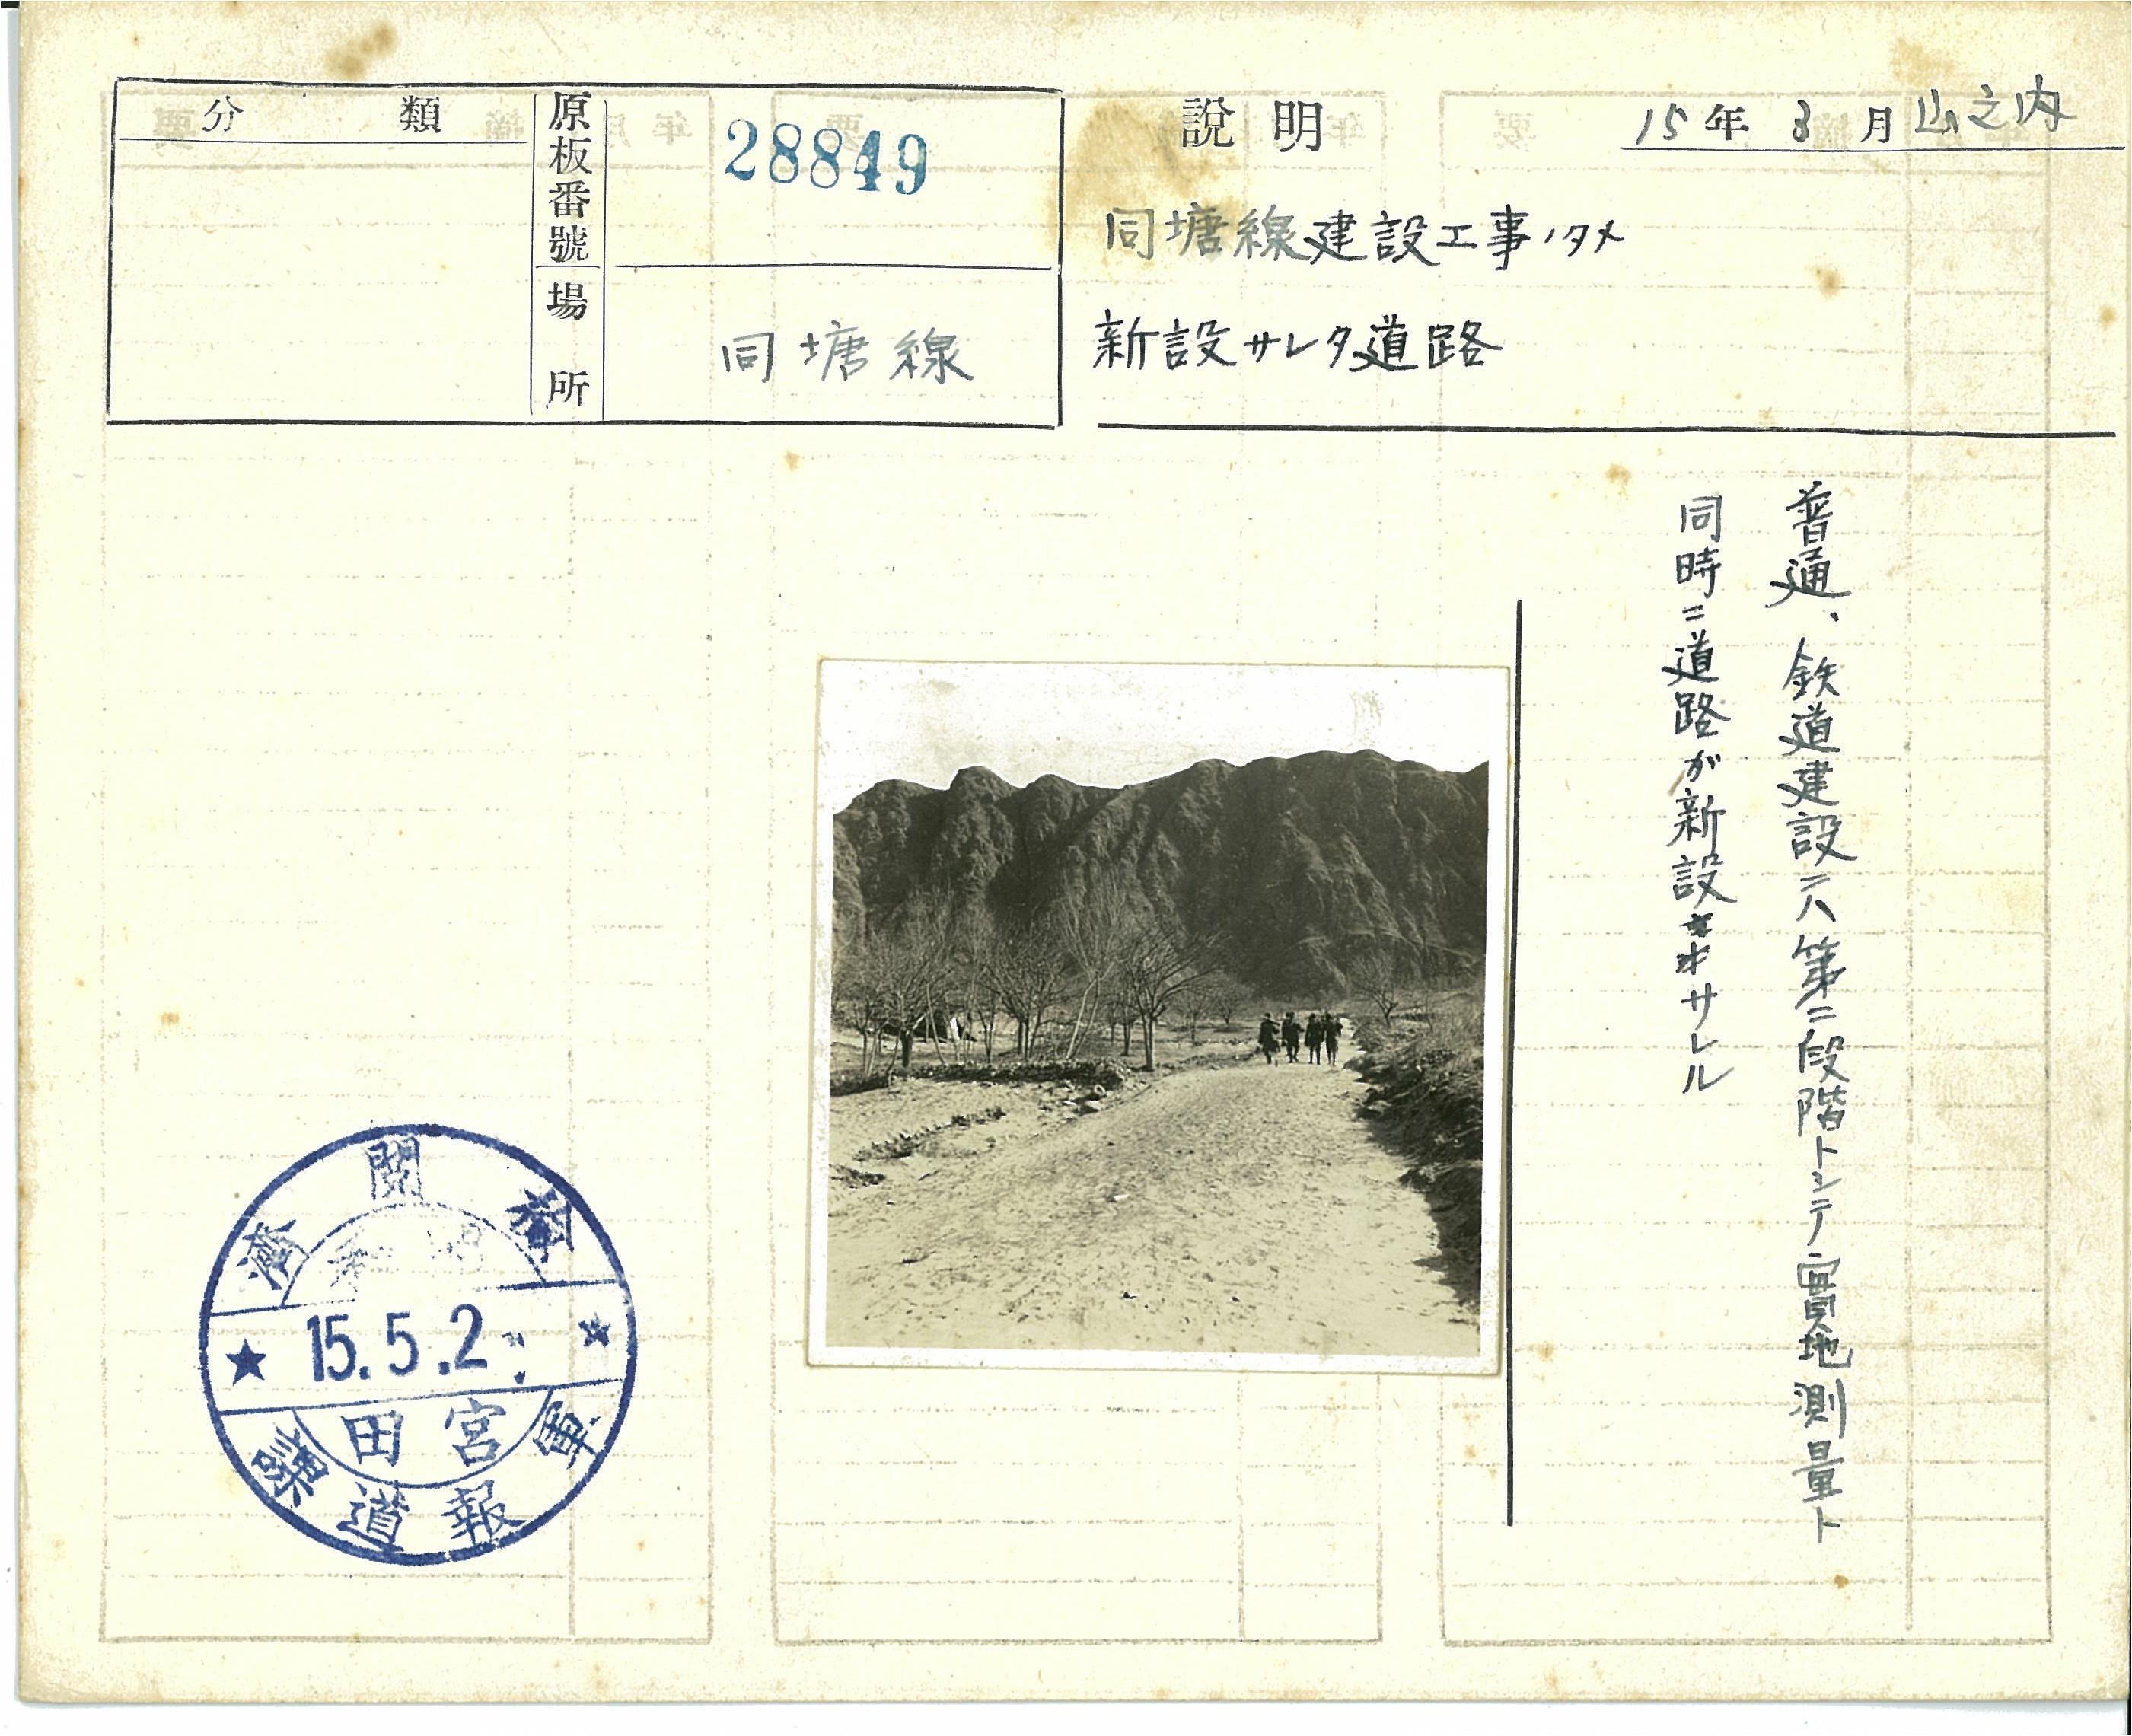 分類
原板番號
28849
場所
同塘線
説明
15年3月山之内
同塘線建設工事ノタメ
新設サレタ道路
普通、鉄道建設ニハ第二段階トシテ實地測量ト
同時ニ道路が新設サレル
検閲済
15.5.2
宮田
軍報道課